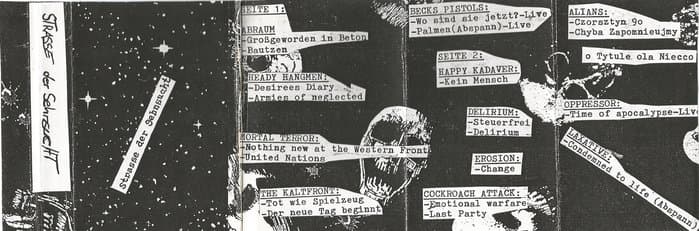 STRASSE der SEhnSUCHT
Strasse der Sehnsucht
SEITE 1:
ABRAUM
-Großgeworden in Beton
-Bautzen
HEADY HANGMEN:
-Desirees Diary
-Armies of neglected
MORTAL TERROR:
-Nothing new at the Western Front
-United Nations
THE KALTFRONT:
-Tot wie Spielzeug
-Der neue Tag beginnt
BECKS PISTOLS:
-Wo sind sie jetzt?-Live
-Palmen(Abspann)-Live
SEITE 2:
HAPPY KADAVER:
-Kein Mensch
DELIRIUM:
-Steuerfrei
-Delirium
EROSION:
-Change
COCKROACH ATTACK:
-Emotional warfare
-Last Party
ALIANS:
-Czorsztyn 90
-Chyba Zapomnieujmy
o Tytule ola Niecco
OPPRESSOR:
-Time of apocalypse-Liv
LAXATIVE:
-Condemned to life (Abspann)